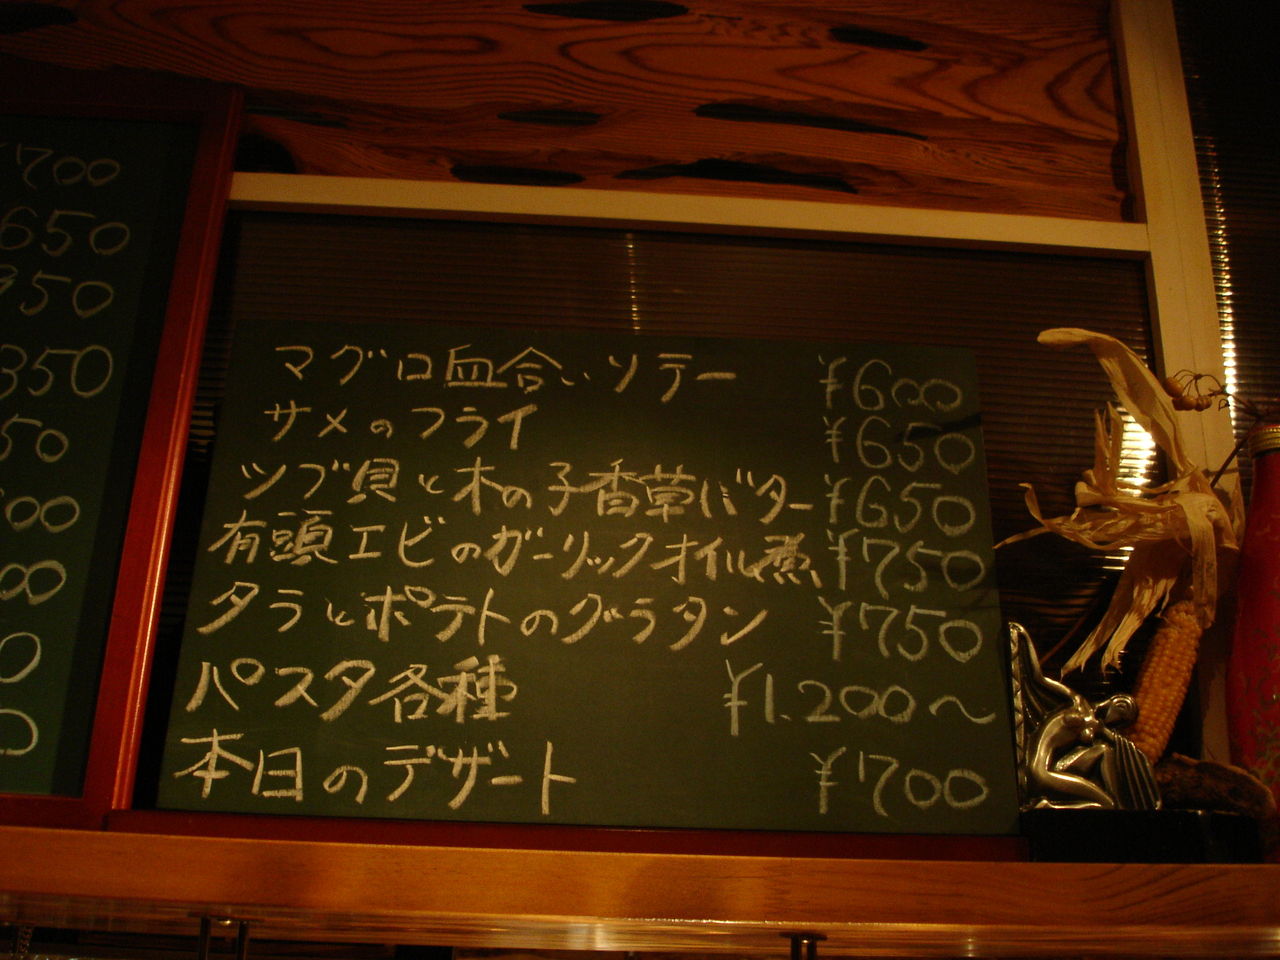 ¥700
650
350
50
00
00
0
0
マグロ血合いソテー ¥600
サメのフライ ¥650
ツブ貝と木の子香草バター ¥650
有頭エビのガーリックオイル煮 ¥750
タラとポテトのグラタン ¥750
パスタ各種 ¥1.200〜
本日のデザート ¥700